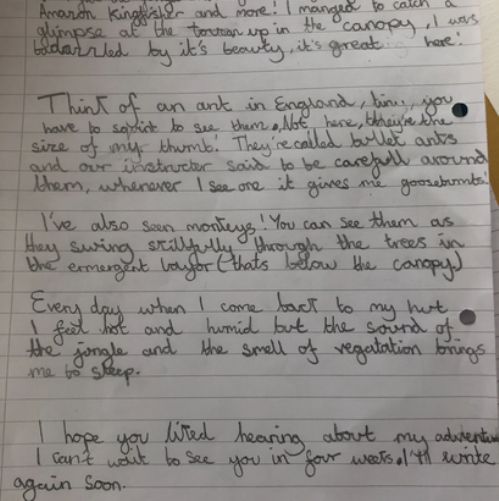 Amazon Kingfisher and more! I manged to catch a
glimpse at the toucan up in the canopy, I was
bedazzled by it's beauty, it's great here!
Think of an ant in England, tiny, you
have to squint to see them. Not here, they're the
size of my thumb! They're called bullet ants
and our instructer said to be carefull around
them, whenever I see one it gives me goosebumbs!
I've also seen monkeys! You can see them as
they swing skilfully through the trees in
the ermergent layor (thats below the canopy)
Every day when I come back to my hut
I feel hot and humid but the sound of
the jungle and the smell of vegatation brings
me to sleep.
I hope you liked hearing about my adventure
I can't wait to see you in four weeks. I'll write
again soon.